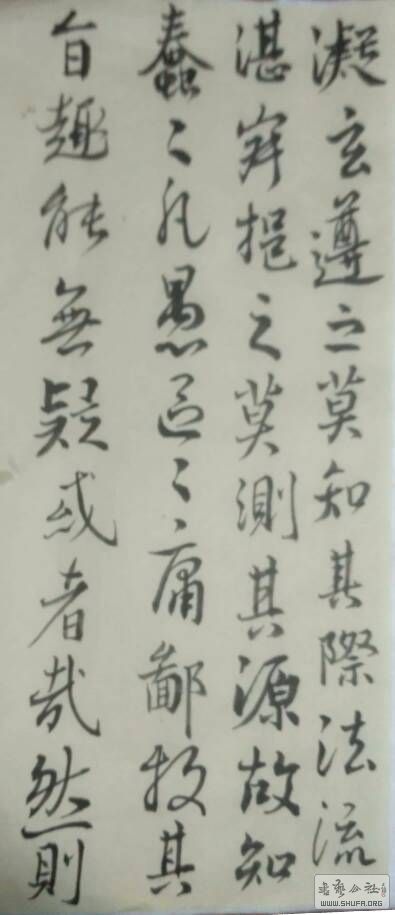 凝玄遵之莫知其際法流
湛寂挹之莫測其源故知
蠢〻凡愚區〻庸鄙投其
旨趣能無疑或者哉然則
書藝公社
WWW.SHUFA.ORG